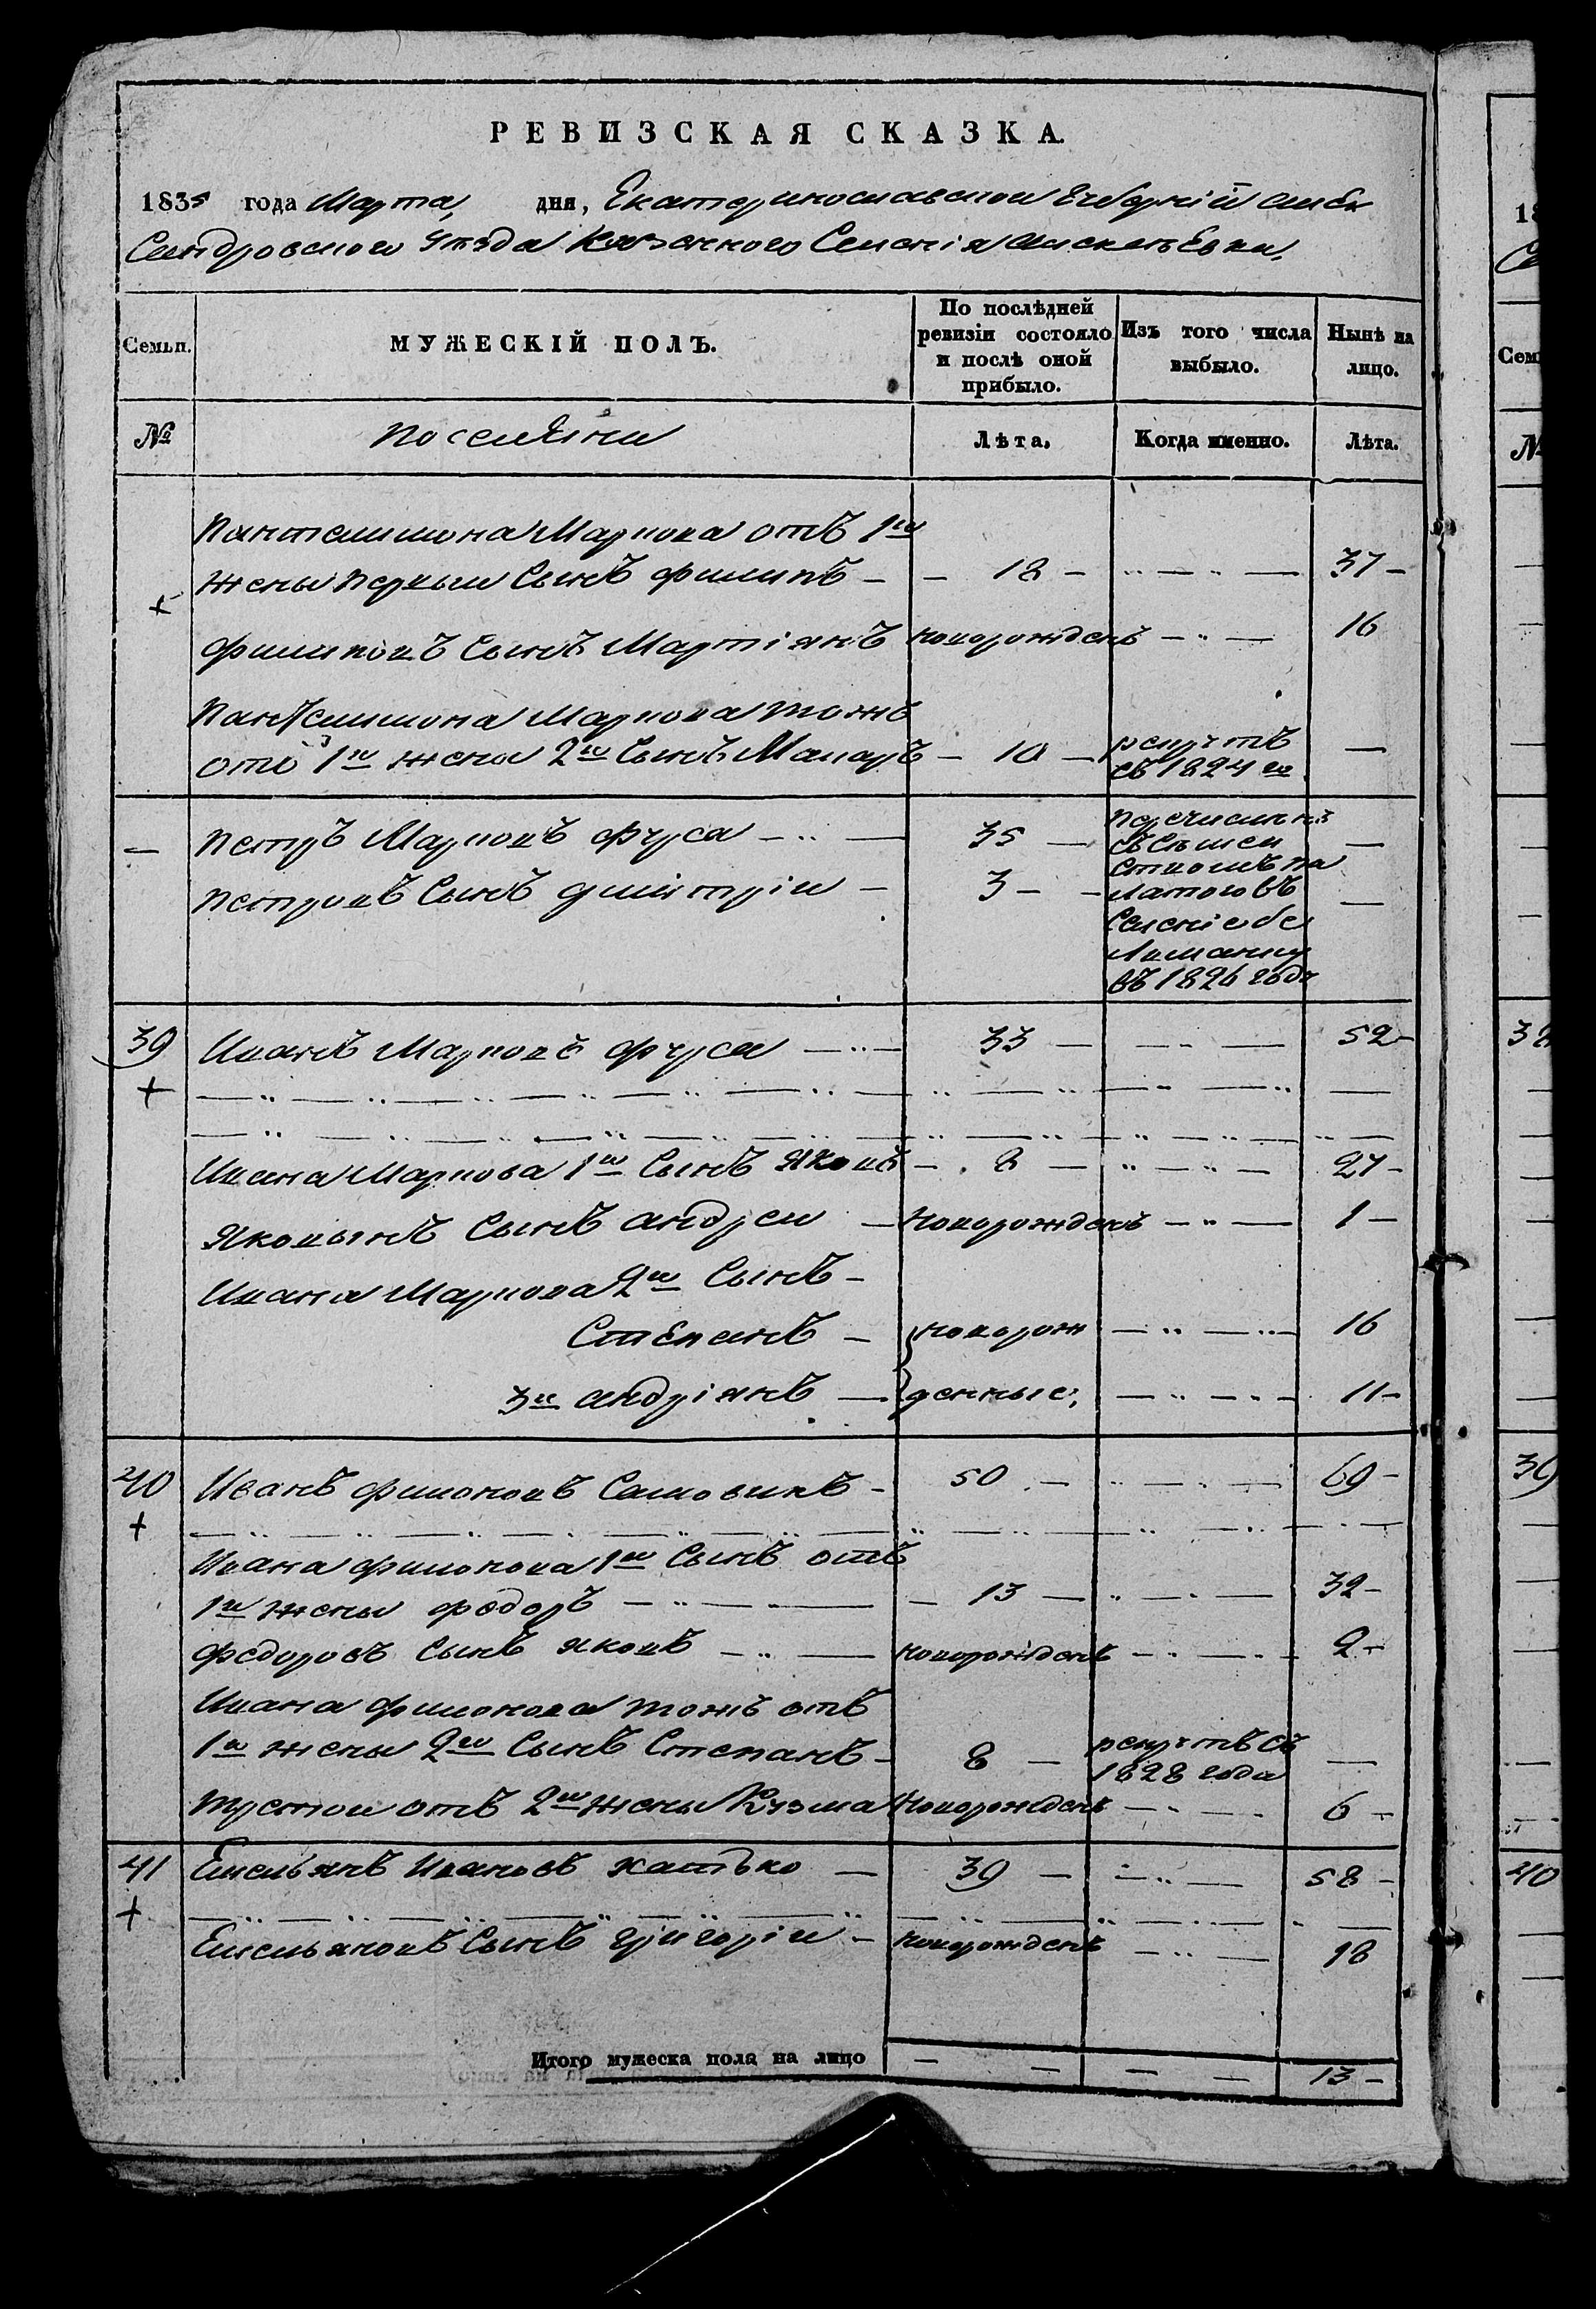 РЕВИЗСКАЯ СКАЗКА.
1835 года Марта, дня, Екатеринославской Губерній Алек
сандровского уѣзда Казенного Селенія
Семьи.
МУЖЕСКІЙ ПОЛЪ.
По послѣдней ревизіи состояло и послѣ оной прибыло.
Изъ того числа выбыло.
Нынѣ на лицо.
№
поселяни
Лѣта.
Когда именно.
Лѣта.
Пантелимона Маркова отъ 1й
жены первый Сынъ Филипъ — 18 — 37
Филиповъ Сынъ Мартіянъ новорожденъ 16
Пантелимона Маркова тожъ
отъ 1й жены 2й Сынъ Макаръ — 10 — рекрутъ
съ 1824 го
Петръ Марковъ Фурса 35 перечисленъ
Петровъ Сынъ Дмитріи 3
Селеніе бе
Лиманку
въ 1826 годе
39 Иванъ Марковъ Фурса 33 52
Ивана Маркова 1й Сынъ Яковъ 8 27
Яковынъ Сынъ андреи новорожденъ 1
Ивана Маркова 2й Сынъ
Степанъ новорож 16
3й андріянъ денные, 11
40 Иванъ Филоновъ Самовикъ 50 69
Ивана Филонова 1й Сынъ отъ
1й жены Федоръ 13 32
Федоровъ Сынъ Яковъ новорожденъ 2
Ивана Филонова тожъ отъ
1й жены 2й Сынъ Степанъ 8 рекрутъ съ
1828 года
третии отъ 2й жены Кузма новорожденъ 6
41 Емельянъ Ивановъ Хатько 39 58
Емельяновъ Сынъ Григоріи новорожденъ 18
Итого мужеска пола на лицо 13